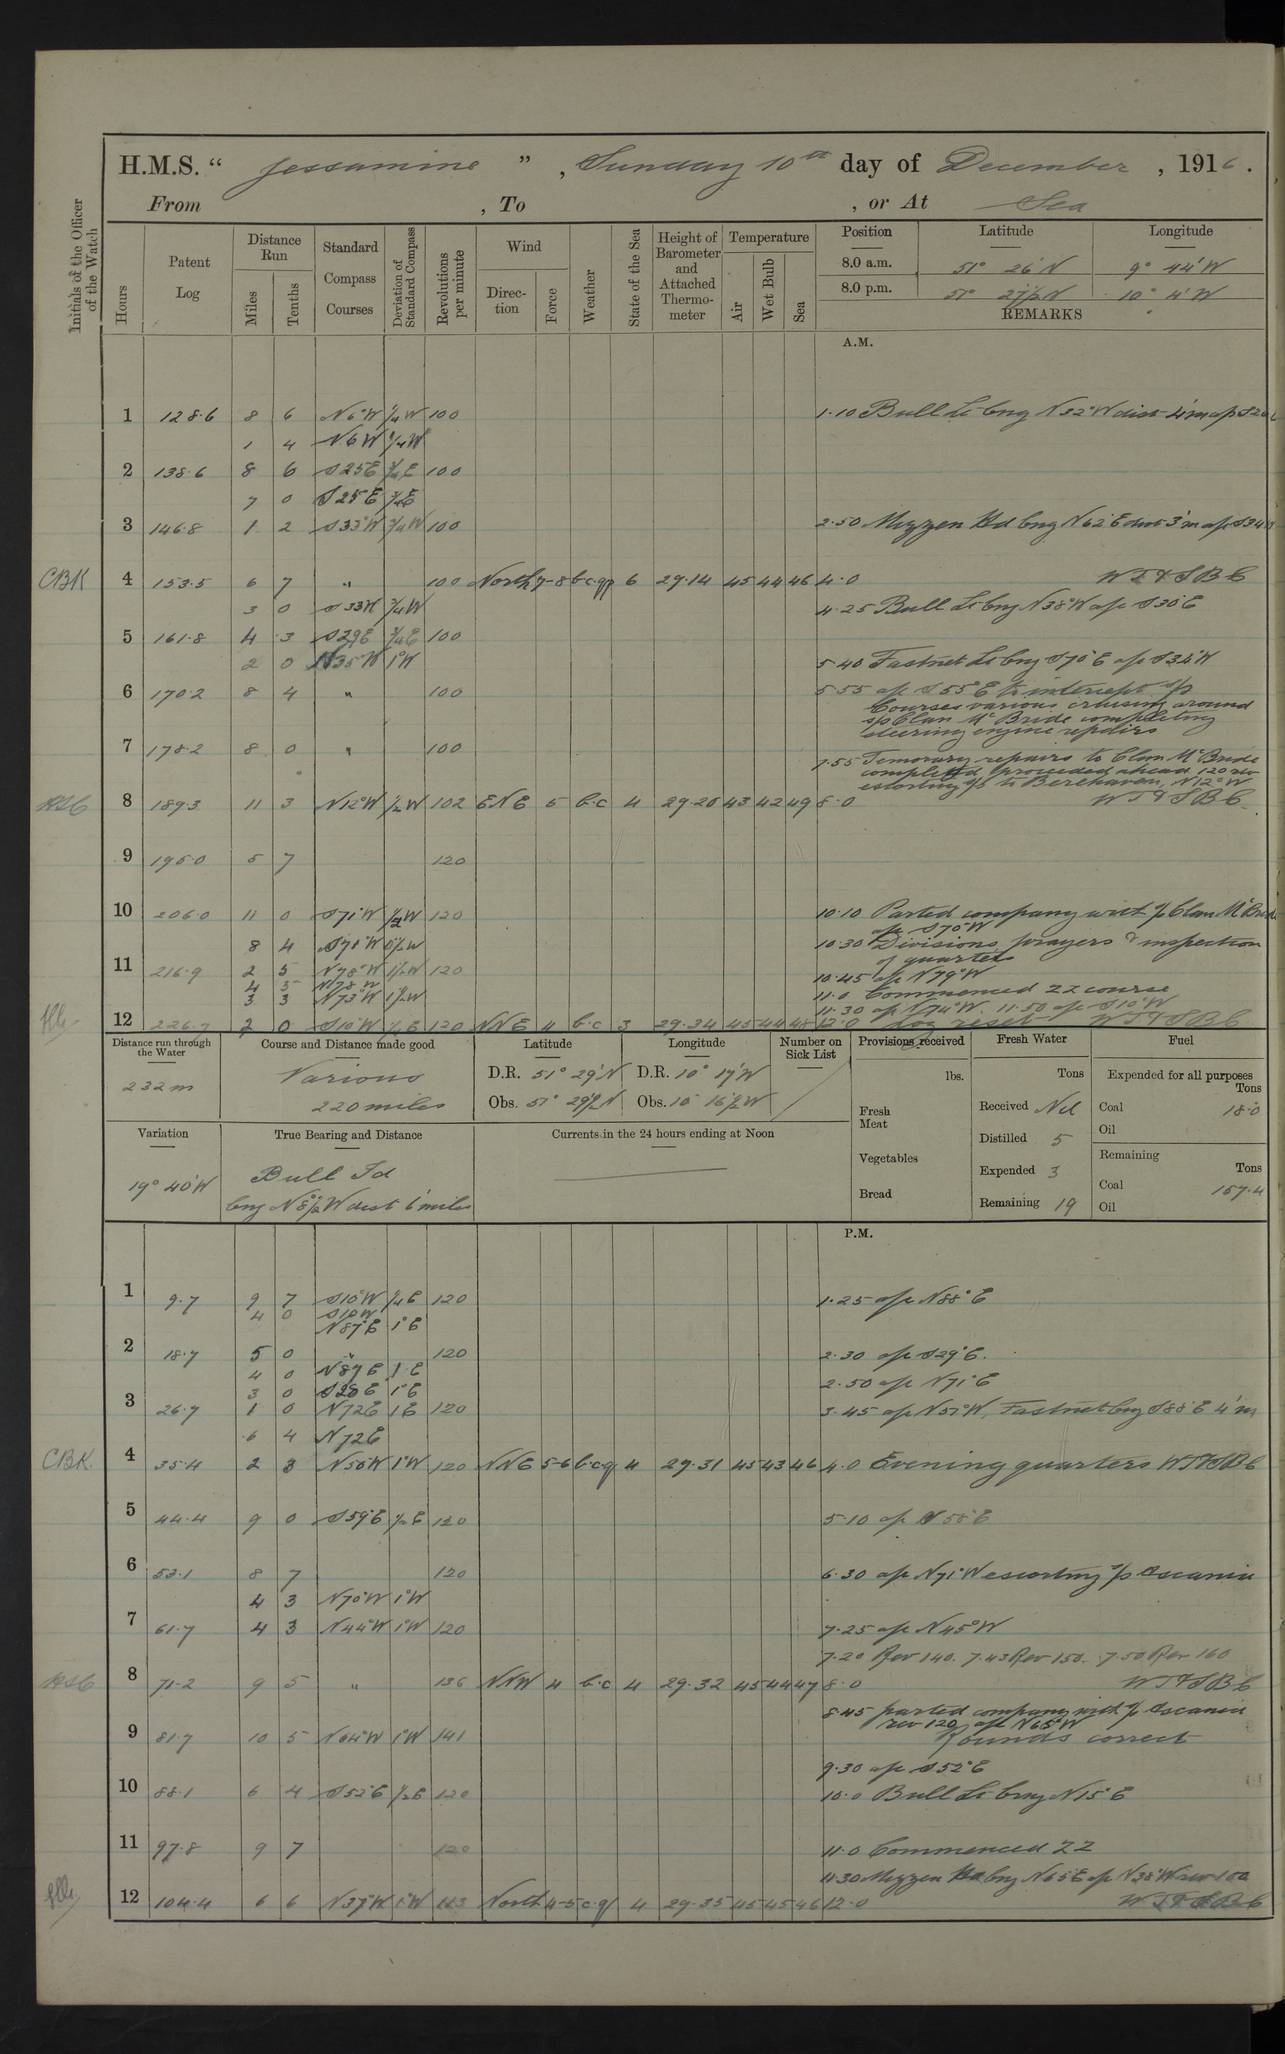 H.M.S. “ Jessamine ” , Sunday 10th day of December , 1916 .
From , To , or At Sea
Initials of the Officer of the Watch
Hours
Patent Log
Distance Run
Miles
Tenths
Standard Compass Courses
Deviation of Standard Compass
Revolutions per minute
Wind
Direction
Force
Weather
State of the Sea
Height of Barometer and Attached Thermometer
Temperature
Air
Wet Bulb
Sea
Position Latitude Longitude
8.0 a.m. 51° 26' N 9° 44' W
8.0 p.m. 51° 27½ N 10° 4' W
REMARKS
A.M.
1 128.6 8 6 N6°W ¼W 100 1.10 Bull Lt brng N32°W dist 4'm a/c
1 4 N6W ¼W
2 138.6 8 6 S25E ¾E 100
7 0 S25E ¾E
3 146.8 1 2 S33°W ¾W 100 2.50 Mizzen Hd brng N62°E dist 3'm a/c
CBK 4 153.5 6 7 " 100 North 7-8 b.c.qp 6 29.14 45 44 46 4.0 WT & SBC
3 0 S33W ¾W 4.25 Bull Lt brng N38°W a/c S30°E
5 161.8 4 3 S29E ¾E 100
2 0 N35W 1°W 5.40 Fastnet Lt brng S70°E a/c
6 170.2 8 4 " 100 5.55 a/c S55°E to intercept s/s
Courses various cruising around
s/s Clan McBride completing
steering engine repairs
7 178.2 8 0 " 100 7.55 Temorary repairs to Clan McBride
completed & proceeded ahead 120 rev
escorting s/s to Berehaven, N12°W
8 189.3 11 3 N12°W ½W 102 ENE 5 b.c 4 29.20 43 42 49 8.0 WT & SBC
9 195.0 5 7 120
10 206.0 11 0 S71°W ½W 120 10.10 Parted company with s/s Clan McBride
a/c S70°W
8 4 S71°W ½W 10.30 Divisions, prayers & inspection
of quarters
11 216.9 2 5 N78°W 1½W 120 10.45 a/c N79°W
4 5 N78W 11.0 Commenced ZZ course
3 3 N73°W 1½W 11.30 a/c N74°W. 11.50 a/c S10°W
12 226.7 2 0 S10°W ¼E 120 NNE 4 b.c 3 29.24 45 44 48 12.0 Log reset WT & SBC
Distance run through the Water
232m
Course and Distance made good
Various
220 miles
Latitude
D.R. 51° 29' N
Obs. 51° 29½ N
Longitude
D.R. 10° 17' W
Obs. 10 16½ W
Number on Sick List
Provisions received
lbs.
Fresh Meat
Vegetables
Bread
Fresh Water
Tons
Received Nil
Distilled 5
Expended 3
Remaining 19
Fuel
Expended for all purposes
Tons
Coal 18.0
Oil
Remaining
Tons
Coal 157.4
Oil
Variation
19° 40'W
True Bearing and Distance
Bull Id
brng N8½°W dist 6 miles
Currents in the 24 hours ending at Noon
P.M.
1 9.7 9 7 S10°W ¼E 120 1.25 a/c N88°E
4 0 S10W
N87°E 1°E
2 18.7 5 0 " 120 2.30 a/c S29°E.
4 0 N87E 1°E
3 0 S28E 1°E 2.50 a/c N71°E
3 26.7 1 0 N72E 1E 120 3.45 a/c N51°W, Fastnet brng S88°E 4'm
6 4 N72E
CBK. 4 35.4 2 3 N50W 1°W 120 NNE 5-6 b.c.q 4 29.31 45 43 46 4.0 Evening quarters WT & SBC
5 44.4 9 0 S59°E ½E 120 5.10 a/c S58°E
6 53.1 8 7 120 6.30 a/c N71°W escorting s/s Ascania
4 3 N70°W 1°W
7 61.7 4 3 N44°W 1°W 120 7.25 a/c N45°W
7.20 Rev 140. 7.43 Rev 150. 7.50 Rev 160
8 71.2 9 5 " 136 NNW 4 b.c 4 29.32 45 44 47 8.0 WT & SBC
8.45 parted company with s/s Ascania
rev 120, a/c N65°W
9 81.7 10 5 N64°W 1°W 141 Rounds correct
9.30 a/c S52°E
10 88.1 6 4 S52°E ½E 120 10.0 Bull Lt brng N15°E
11 97.8 9 7 120 11.0 Commenced ZZ
11.30 Mizzen Hd brng N65E a/c N38°W
12 104.4 6 6 N37°W 1°W 113 North 4-5 c.q 4 29.35 45 45 46 12.0 WT & SBC